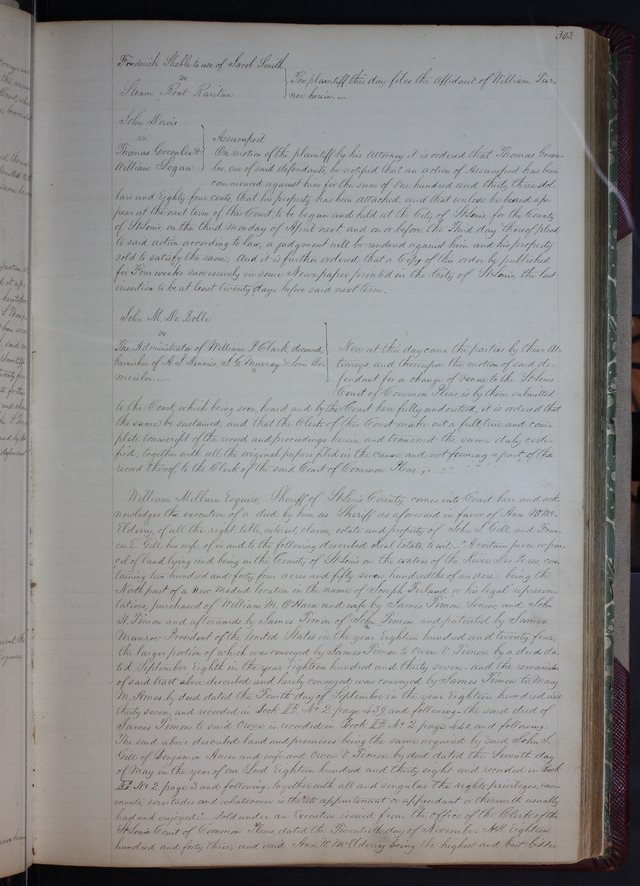 303
Frederick Stabble to use of Jacob Smith
vs
Steam Boat Raritan
The plaintiff this day files the Affidavit of William
ner herein
John Davis
vs
Thomas Greenlee &
William Logan
Assumpsit
On motion of the plaintiff by his Attorney it is ordered that Thomas Green
lee, one of said defendants be notified that an action of Assumpsit has been
commenced against him for the sum of One hundred and thirty three dol
lars and Eighty four cents, that his property has been attached, and that unless he appear
at the next term of this Court to be begun and held at the City of St Louis, for the County
of St Louis, on the third Monday of April next and on or before the Third day thereof plead
to said action according to law, a judgment will be rendered against him and his property
sold to satisfy the same, And it is further ordered that a Copy of this order be published
for Four weeks successively in some Newspaper printed in the City of St Louis, the last
insertion to be at least twenty days before said next term.
John M. De Bolle
vs
The Administrator of William P. Clark, deceased,
Garnishee of A. S. & Louis
Now at this day come the parties by their At
torneys and thereupon the motion of said de
fendant for a change of venue to the St Louis
Court of Common Pleas, is by them submitted
to the Court, which being seen heard and by the Court here fully understood, it is ordered that
the same be sustained, and that the Clerk of this Court make out a full true and com
plete transcript of the record and proceedings herein, and transmit the same duly certi
fied, together with all the original papers filed in the cause and not forming a part of the
record thereof, to the Clerk of the said Court of Common Pleas.
William Milburn Esquire, Sheriff of St Louis County, comes into Court here and ack
nowledges the execution of a deed by him as Sheriff as aforesaid in favor of Ann W. Mc
Elderry, of all the right title, interest, claim, estate and property of John S. Gill, and Fran
ces E. Gill his wife, of in and to the following described Real Estate, to wit, A certain piece or par
cel of Land lying and being in the County of St Louis on the waters of the River Des Peres, con
taining two hundred and forty four acres and fifty seven hundredths of an acre, being the
North part of a New Madrid location in the name of Joseph or his legal represen
tatives, purchased of William M. O'Hara and wife by James Timon Senior, and John
Timon and afterwards by James Timon of John Timon, and patented by James
Munroe President of the United States in the year Eighteen hundred and twenty four
the larger portion of which was conveyed by James Timon to Owen V. Timon by a deed da
ted September Eighth in the year Eighteen hundred and thirty seven, and the remainder
of said tract above described and hereby conveyed was conveyed by James Timon to Mary
M. Ames by deed dated the Fourth day of September in the year Eighteen hundred and
thirty seven, and recorded in Book No 2 page 439 and following the said deed of
James Timon to said Owen is recorded in Book No 2 page 440 and following
The said above described land and premises being the same acquired by said John S.
Gill of Benjamin Ames and wife and Owen V. Timon by deed dated the Seventh day
of May in the year of our Lord Eighteen hundred and thirty eight and recorded in Book
No 2 page 3 and following, together with all and singular the rights, privileges, ease
ments, servitudes and whatsoever is thereto appurtenant or appendant or therewith usually
had and enjoyed. Sold under an execution issued from the office of the Clerk of the
St Louis Court of Common Pleas dated the Twentieth day of November A.D. Eighteen
hundred and forty three, and said Ann W. McElderry being the highest and best bidder